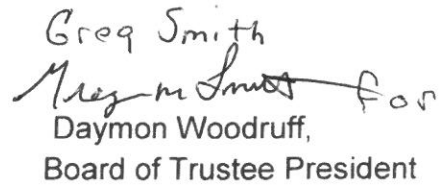 Greg Smith
Greg m Smith For
Daymon Woodruff,
Board of Trustee President